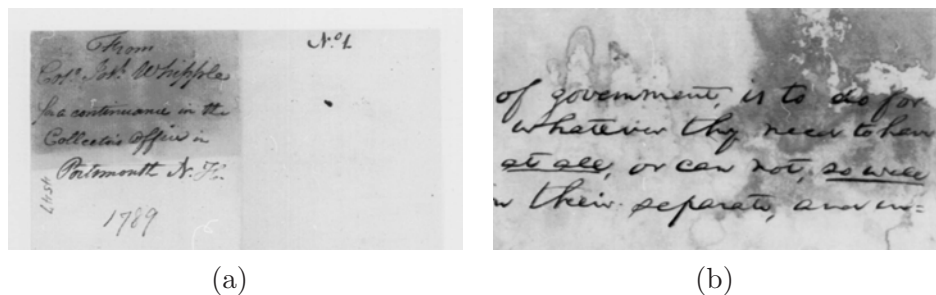 From
Colo. Jos. Whipple
for a continuance in the
Collectors Office in
Portsmouth N. H.
1789
No. 1.
(a)
of government, is to do for
whatever they need to have
at all, or can not, so well
their separate, and in=
(b)